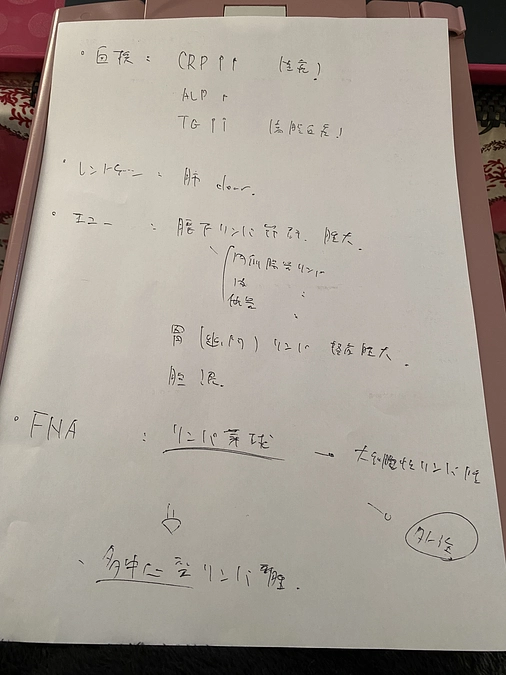 ・血検 : CRP↑↑ (炎症!)
ALP↑
TG↑↑ (高脂血症!)
・レントゲン : 肺 clear.
・エコー : 腰下リンパ節 腫大.
内側腸骨リンパ
胃 (幽門) リンパ 軽度腫大.
胆泥.
・FNA : リンパ芽球 → 大細胞性リンパ腫
外注
⇩
、多中心型リンパ腫.